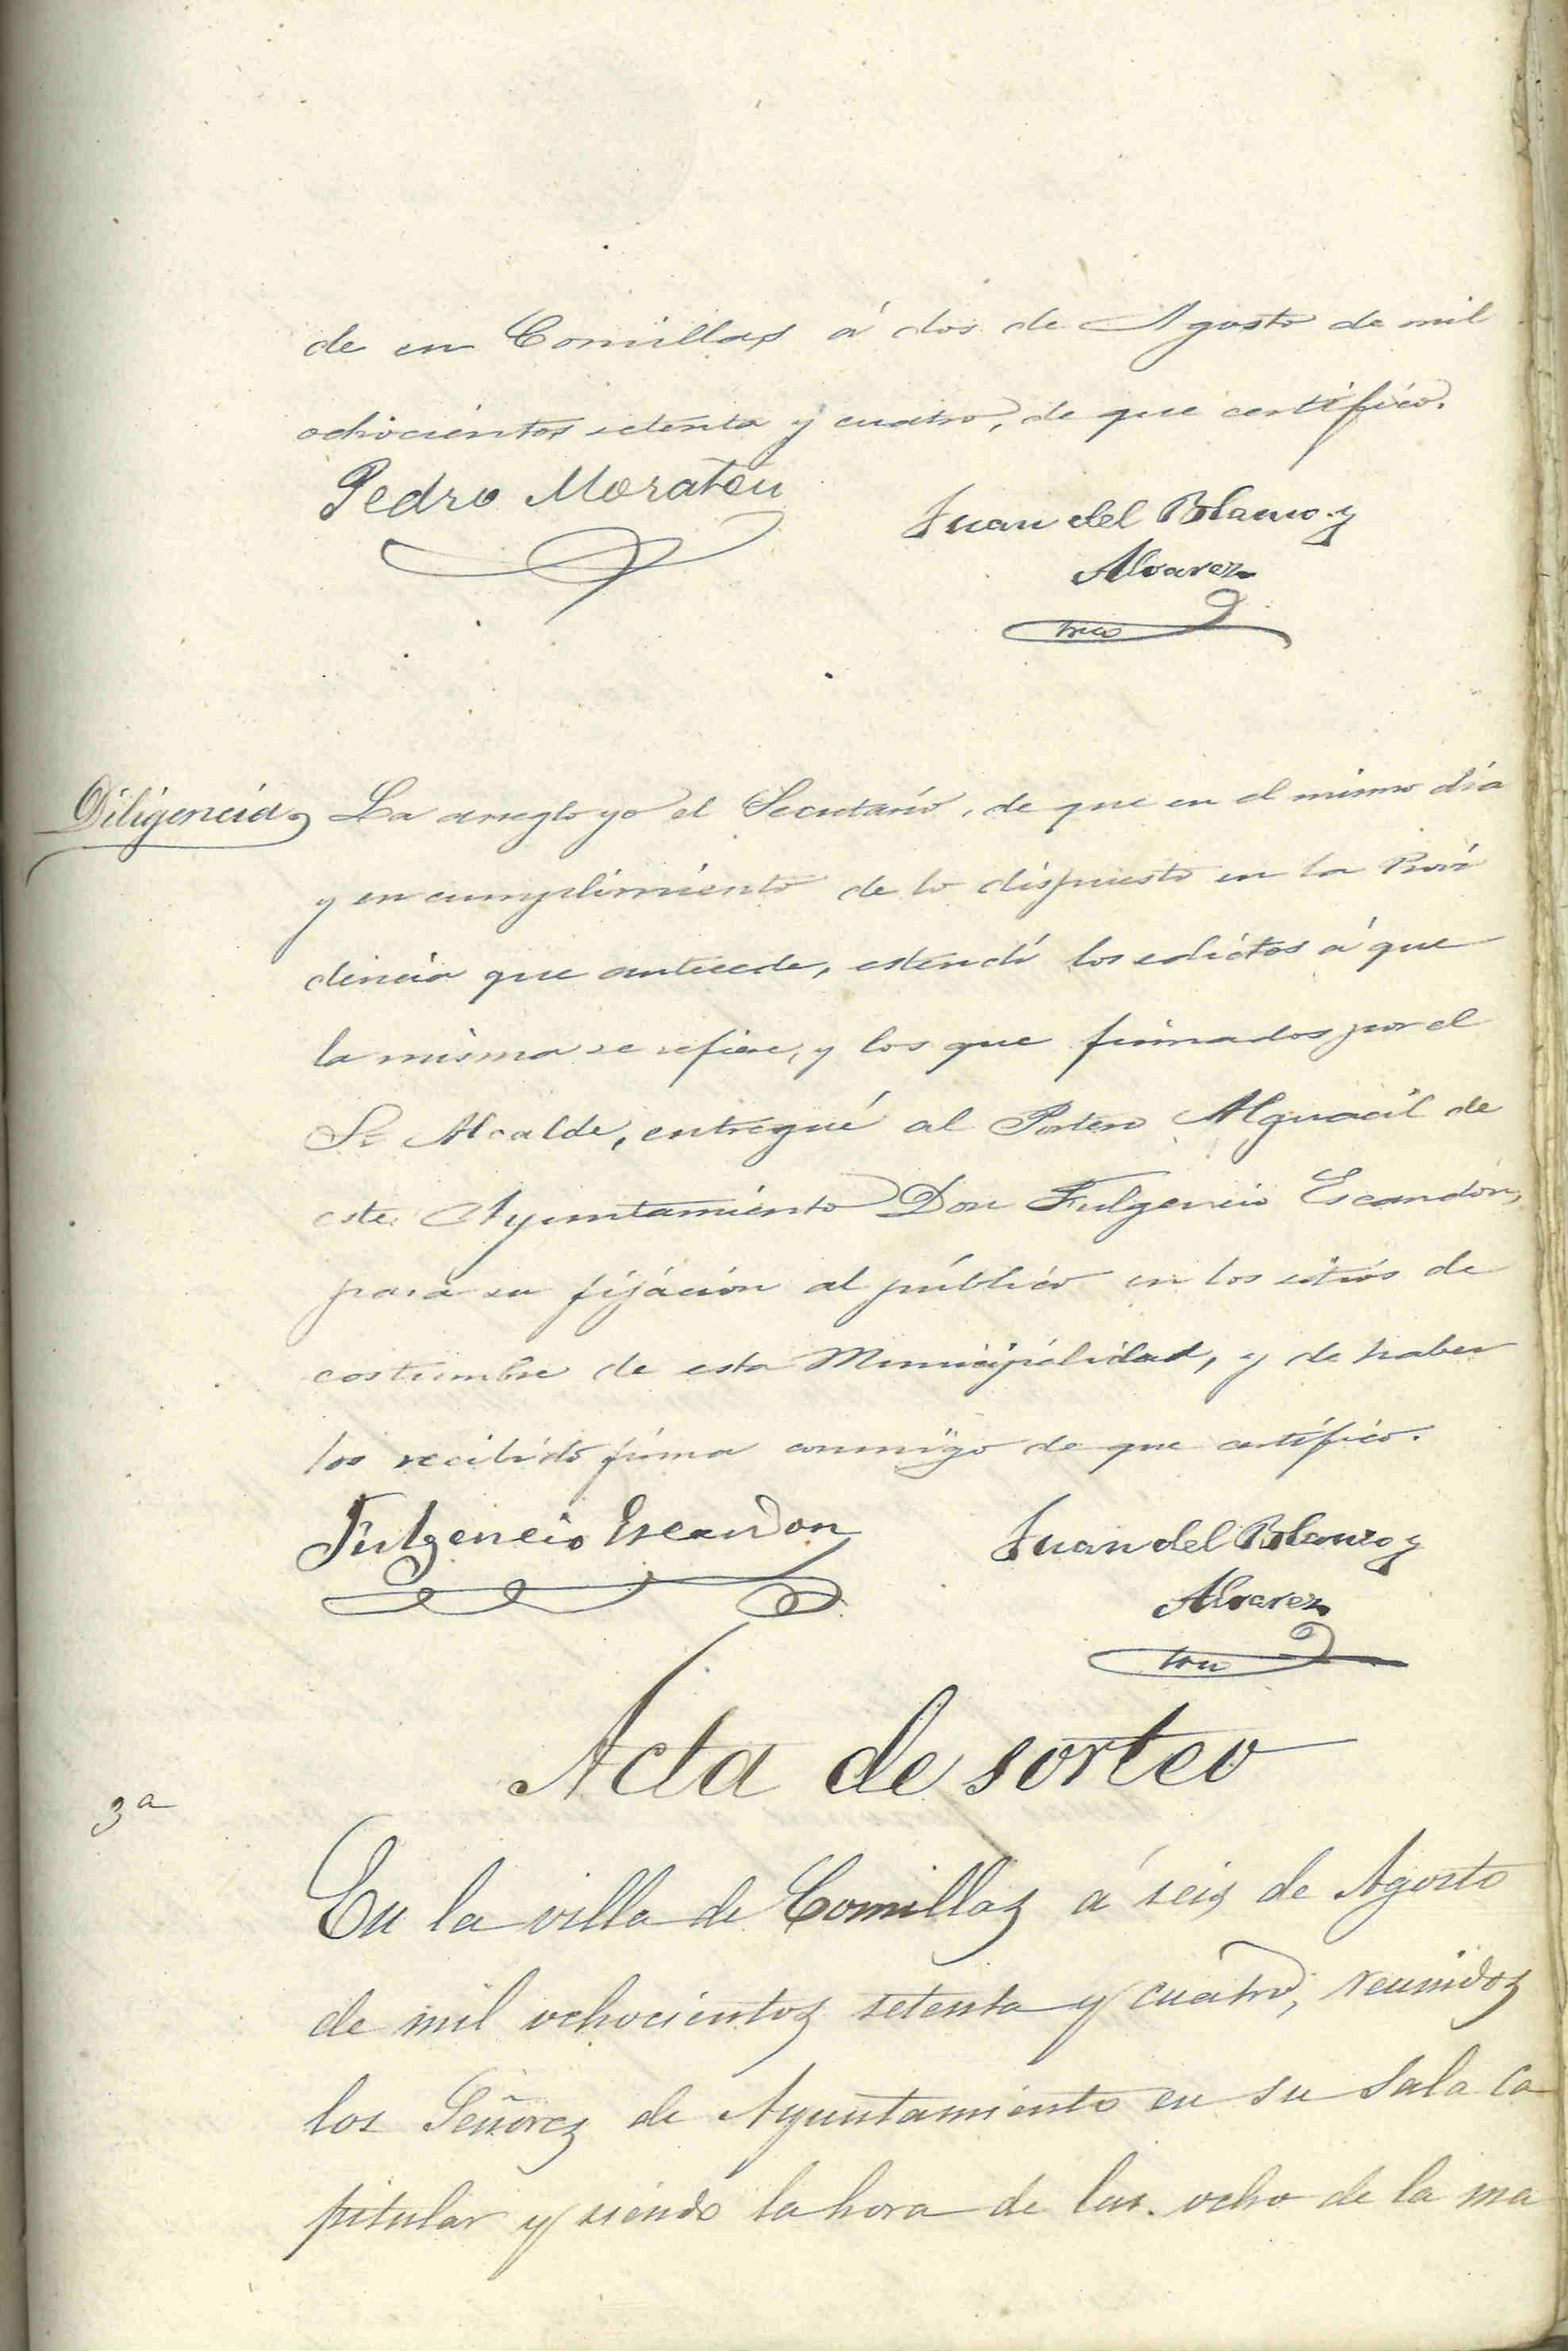 de en Comillas á dos de Agosto de mil
ochocientos setenta y cuatro, de que certifico.
Pedro Morateu
Juan del Blanco y
Alvarez
Diligencia, La arreglo yo el Secretario, de que en el mismo dia
y en cumplimiento de lo dispuesto en la Provi
dencia que antecede, estendí los edictos á que
la misma se refiere, y los que firmados por el
Sr Alcalde, entregué al Portero Alguacil de
este Ayuntamiento Don Fulgencio Escandón,
para su fijación al público en los sitios de
costumbre de esta Municipalidad, y de haber
los recibido firma conmigo de que certifico.
Fulgencio Escandon
Juan del Blanco y
Alvarez
Acta de sorteo
3ª
En la villa de Comillas á seis de Agosto
de mil ochocientos setenta y cuatro, reunidos
los Señores de Ayuntamiento en su Sala Ca
pitular y siendo la hora de las ocho de la ma